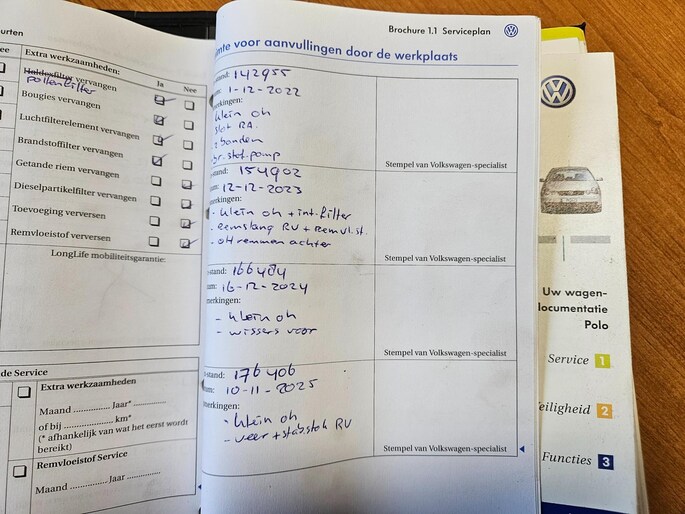 urten
ee
Extra werkzaamheden:
Ja
Nee
Haldexfilter vervangen
pollenfilter
Bougies vervangen
Luchtfilterelement vervangen
Brandstoffilter vervangen
Getande riem vervangen
Dieselpartikelfilter vervangen
Toevoeging verversen
Remvloeistof verversen
LongLife mobiliteitsgarantie:
de Service
Extra werkzaamheden
Maand .............. Jaar*..............
of bij .............. km*
(* afhankelijk van wat het eerst wordt
bereikt)
Remvloeistof Service
Maand .............. Jaar ..............
Brochure 1.1 Serviceplan
mte voor aanvullingen door de werkplaats
-stand: 142955
1-12-2022
erkingen:
klein oh
slot RA.
banden
Stempel van Volkswagen-specialist
-stand: 154902
um: 12-12-2023
erkingen:
- klein oh + int.filter
- remslang RV + Remvl.st.
- oh remmen achter
Stempel van Volkswagen-specialist
-stand: 166484
um: 16-12-2024
erkingen:
- klein oh
- wissers voor
Stempel van Volkswagen-specialist
-stand: 176406
um: 10-11-2025
erkingen:
- klein oh
- veer + stabstok RV
Stempel van Volkswagen-specialist
Uw wagen-
documentatie
Polo
Service 1
eiligheid 2
Functies 3